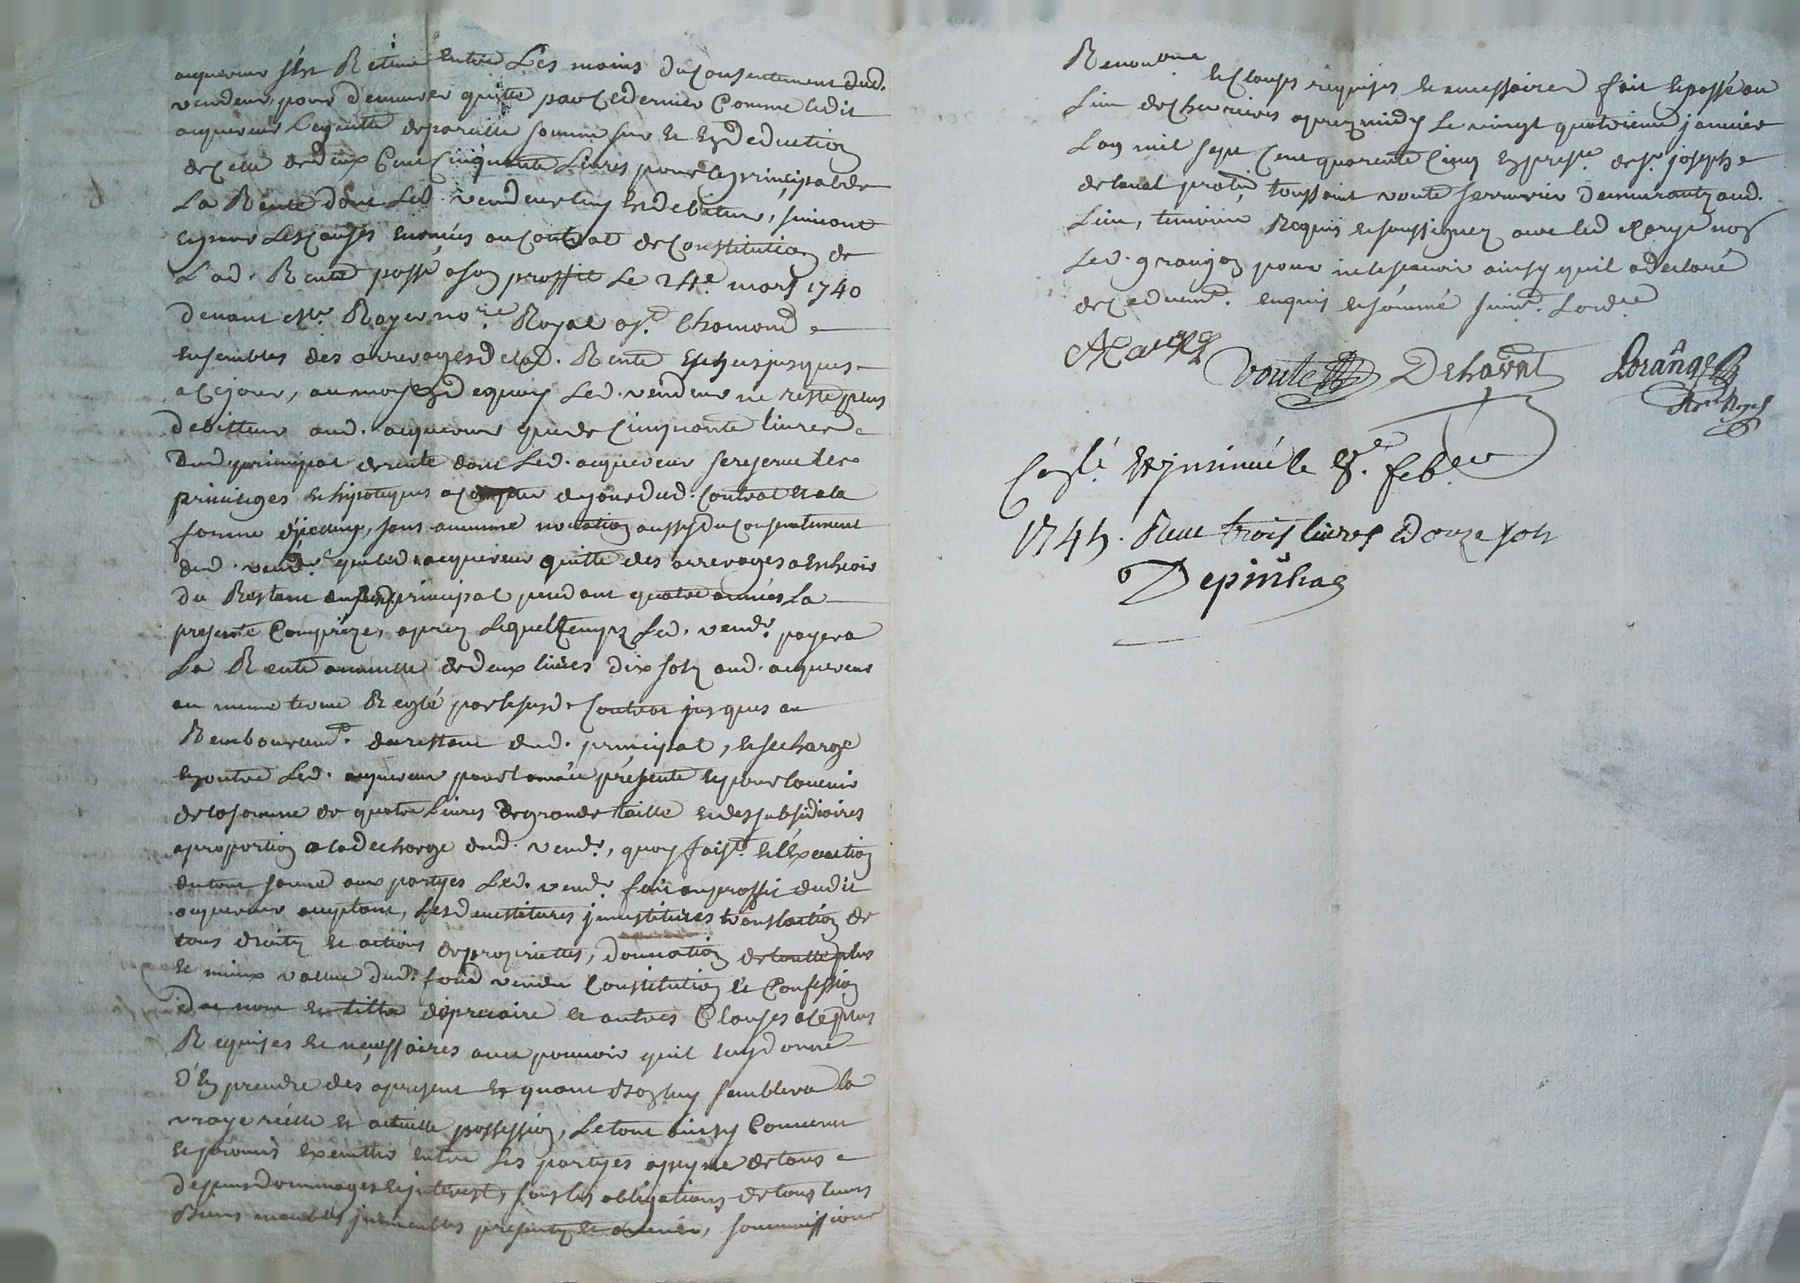 acquereur s'est Retenu entre Les mains du Consentement dud.
vendeur, pour demeurer quitte par Cedernier Comme ledit
acquereur Lequitte depareille somme sur et En deduction
decelle dedeux Cent Cinquante Livres pour le principal de
La Rente dont Led. vendeur luy Est debiteur, suivant
Et pour Les Causes Enoncées au Contrat de Constitution de
Lad. Rente passé a son proffit Le 24e mars 1740
devant Me Royer nore Royal a St Chamond
Ensembles des arrerages de lad. Rente Echus jusques
a Cejour, au moyen dequoy Led. vendeur ne reste plus
debitteur aud. acquereur que de Cinquante livres
dud principal de rente dont Led. acquereur se reserve les
privileges et hipoteques a du jour dud. Contrat Et a la
forme d'jceluy, sans aucune novation aussy du Consentement
dud. vendr que led. acquereur quitte des arrerages a Escheoir
du Restant dud. principal pendant quatre années La
presente Comprize, aprez Lequel temps Led. vendr payera
La Rente annuelle de deux livres dix sols aud. acquereur
au meme terme Reglé par le susd. Contrat jusques au
Rembourcemt du restant dud. principal, et se charge
En outre Led. acquereur pour l'année présente Et pour l'avenir
de la somme de quatre Livres de grande taille et des subsidiaires
a proportion a la decharge dud. vendr, quoy faist. et l'Execution
du tout sauve aux partyes Led. vendr fait au proffit dudit
acquereur acceptant, Les devestitures jnvestitures translation de
tous droits et actions de proprietés, donnation de toutte plus
et mieux vallue dud. fond vendu Constitution et Confession
de nom et tiltre de precaire et autres Clauses a ce plus
Requises et necessaires avec pouvoir quil luy donne
d'En prendre dès apresent et quant bon luy semblera la
vraye réelle et actuelle possession, Le tout ainsy Convenu
Et promis Executter entre Les partyes a peyne de tous
depens dommages Et jnterests, sous les obligations de tous leurs
Biens meubles jmmeubles presents et avenir, soumissions
Renon
et Clauses requises et necessaires fait et passé au
Lieu de Chevrieres aprez midy Le vingt quatrieme janvier
Lan mil sept Cent quarente Cinq En presce de sr joseph
toussaint voute serrurier demeurants aud.
Lieu, temoins Requis et soussignez avec led
Led. grangon pour ne le scavoir ainsy quil a declaré
de Ce duemt. enquis et sommé suivt. Lordce
Voute Lorange
nore Royal
Coñlé Et jnsinué le 8e feber
1745. Receu trois livres douze sols
Depinhac